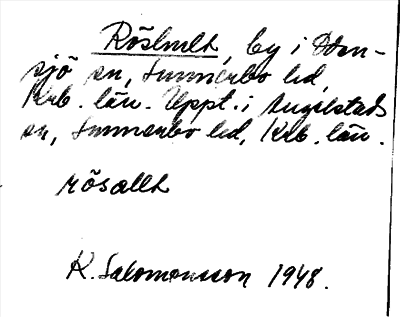 Röshult, by i Hamn-
sjö sn, Sunnerbo hd,
Krb. län. Uppt. i Angelstads
sn, Sunnerbo hd, Krb. län.
rösallt
K. Salomonsson 1948.